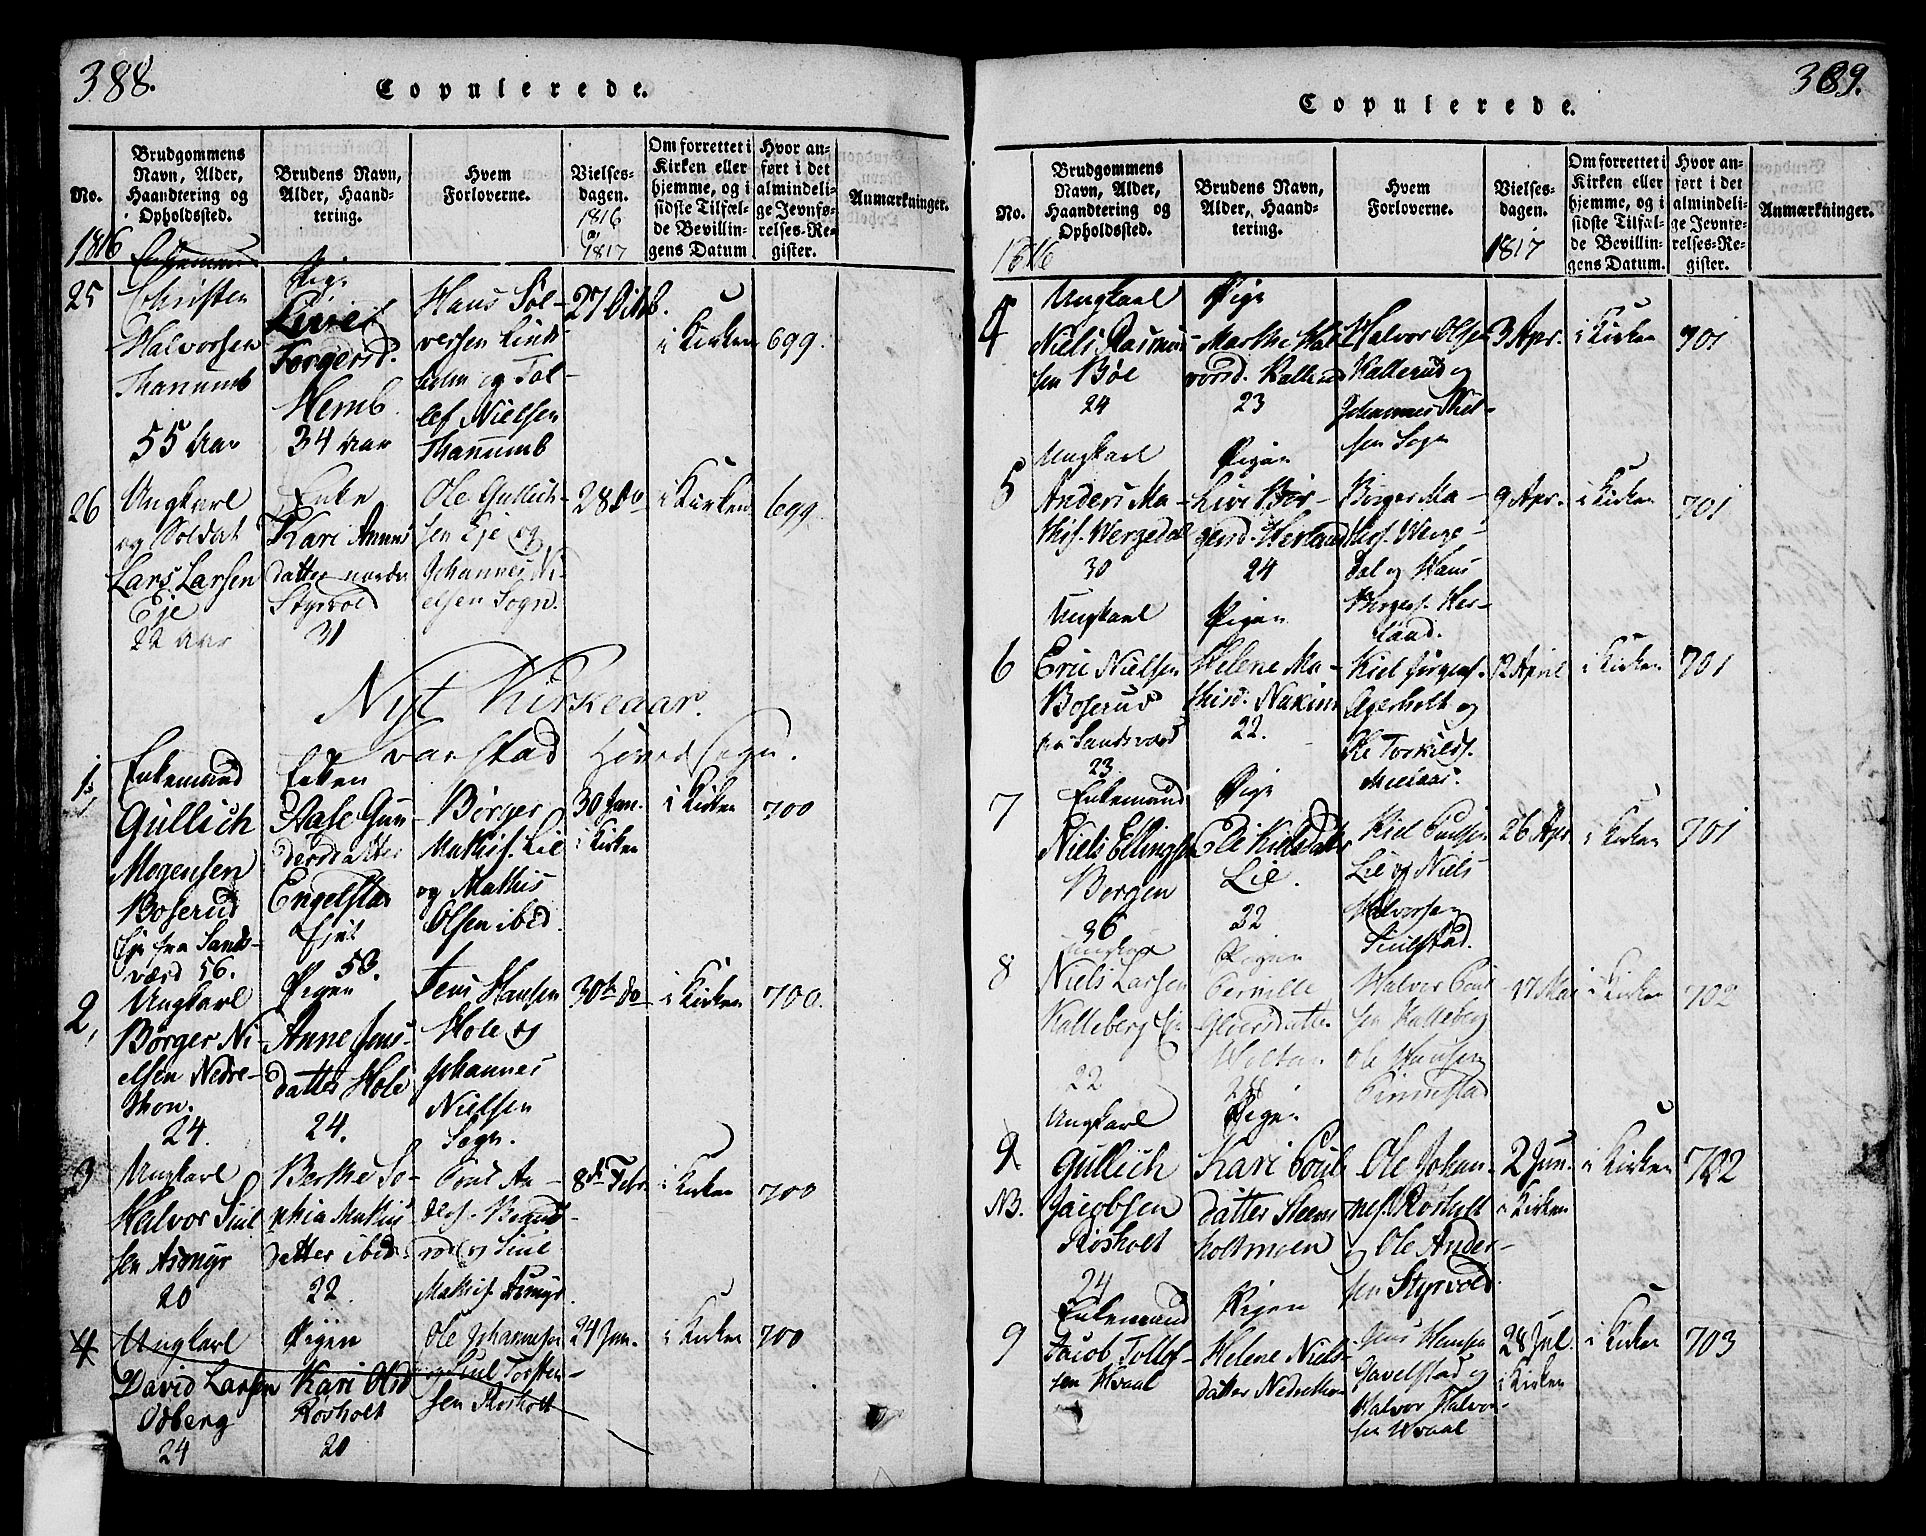 388.
Copulerede.
No.
Brudgommens
Navn, Alder,
Haandtering og
Opholdssted.
Brudens Navn,
Alder, Haand-
tering.
Hvem
Forloverne.
Vielses-
dagen.
1816
1817
Om forrettet i
Kirken eller
hjemme, og i
sidste Tilfæl-
de Bevillin-
gens Datum
Hvor an-
ført i det
almindeli-
ge Jevnfø-
relses-Re-
gister.
Anmærkninger.
1816
Enkemand
25
Christen
Halvorsen
Thanumb
55 Aar
Pige
Live
Torgersd.
Hemb.
34 Aar
Hans Søl-
versen Lind-
holm og Tol-
lef Nielsen
Thanumb
27 Octb.
i Kirken
699.
26
Ungkarl
og Soldat
Lars Larsen
Eje
22 Aar
Enke
Kari Annes
datter nordre
Styrvold
31
Ole Gullich-
sen Eje og
Johannes Ni-
elsen Sogn.
28 do
i Kirken
699.
Nyt Kirkeaar.
varstad Hoved Sogn.
1
Enkemand
Gullich
Mogensen
Boserud
Eje fra Sands-
værd 56.
Enken
Aase Gun-
dersdatter
Engelstad
Eje
53.
Børger
Mathis. Lie
og Mathis
Olsen ibid
30 Jan.
i Kirken
i Kirken
700
2,
Ungkarl
Børger Ni-
elsen Nedre-
thon.
24.
Pigen
Anne Jens-
datter Hole
24.
Jens Hansen
Hole og
Johannes
Nielsen
Sogn.
30te do
i Kirken
700.
3
Ungkarl
Halvor Siul
sen Asmyr
20
Berthe So-
phia Mathis
datter ibid.
22
Poul An-
ders. Brand-
rod og Siul
Mathis. Asmyr.
8de Febr.
i Kirken
700
4
Ungkarl
David Larsen
Odberg
24
Pigen
Kari Olsd
Rosholt
20
Ole Johannesen
og Siul Torsten-
sen Rosholt
24 Jun.
i Kirken
700
389.
Copulerede.
No.
Brudgommens
Navn, Alder,
Haandtering og
Opholdssted.
Brudens Navn,
Alder, Haand-
tering.
Hvem
Forloverne.
Vielses-
dagen.
1817
Om forrettet i
Kirken eller
hjemme, og i
sidste Tilfæl-
de Bevillin-
gens Datum.
Hvor an-
ført i det
almindeli-
ge Jevnfø-
relses-Re-
gister.
Anmærkninger.
1816
4
Ungkarl
Niels Rasmus-
sen Bøe
24
Pige
Marthe Hal-
vorsd. Kallerud
23
Halvor Olsen
Kallerud og
Johannes Niel-
sen Sogn
3 Apr.
i Kirken
701
5
Ungkarl
Anders Ma-
this. Wergedal
30
Pigen
Live Bør-
gersd. Herland
24
Børger Ma-
this. Werge-
dal og Hans
Børgers. Her-
land.
9 Apr.
i Kirken
701
6
Ungkarl
Eric Nielsen
Boserud
fra Sandsværd
23
Pigen
Helene Ma-
thisd. Nakim
22.
Kiel Jørgens.
Agerholt og
Ole Torkilds.
12 April
i Kirken
701
7
Enkemand
Niels Ellingsen
Bergen
36
Pige
Eli Kielsdatter
Lie.
32
Kiel Poulsen
Lie og Niels
Halvorsen
Siulstad.
26 Apr.
i Kirken
701
8
Ungkarl
Niels Larsen
Kalleberg Eje
22
Pigen
Pernille
28
Halvor Poul
sen Kalleberg
Ole Hansen
17 Mai
i Kirken
702
9
NB.
Ungkarl
Gullich
Jacobsen
Rosholt
24
Pigen
Kari Poul
datter Steens
holtmoen
Ole Johan-
nes. Rosholt
og Ole Ander-
sen Styrvold.
2 Jun.
i Kirken
i Kirken
702
9
Enkemand
Jacob Tollef-
sen Hvaal
Pigen
Helene Niels-
datter Nedrethon
Jens Hansen
Gavelstad og
Halvor Halvor-
sen Hvaal
28 Jul.
i Kirken
i Kirken
703